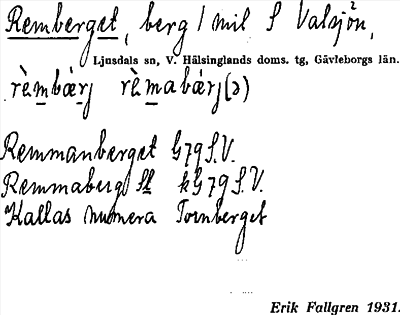 Remberget, berg 1 mil S Valsjön,
Ljusdals sn, V. Hälsinglands doms. tg, Gävleborgs län.
rèm̲bæ̀rj rèm̲abærj(ə)
Remmanberget G79 S.V.
Remmaberg Sl kG79 S.V.
Kallas numera Tornberget
Erik Fallgren 1931.